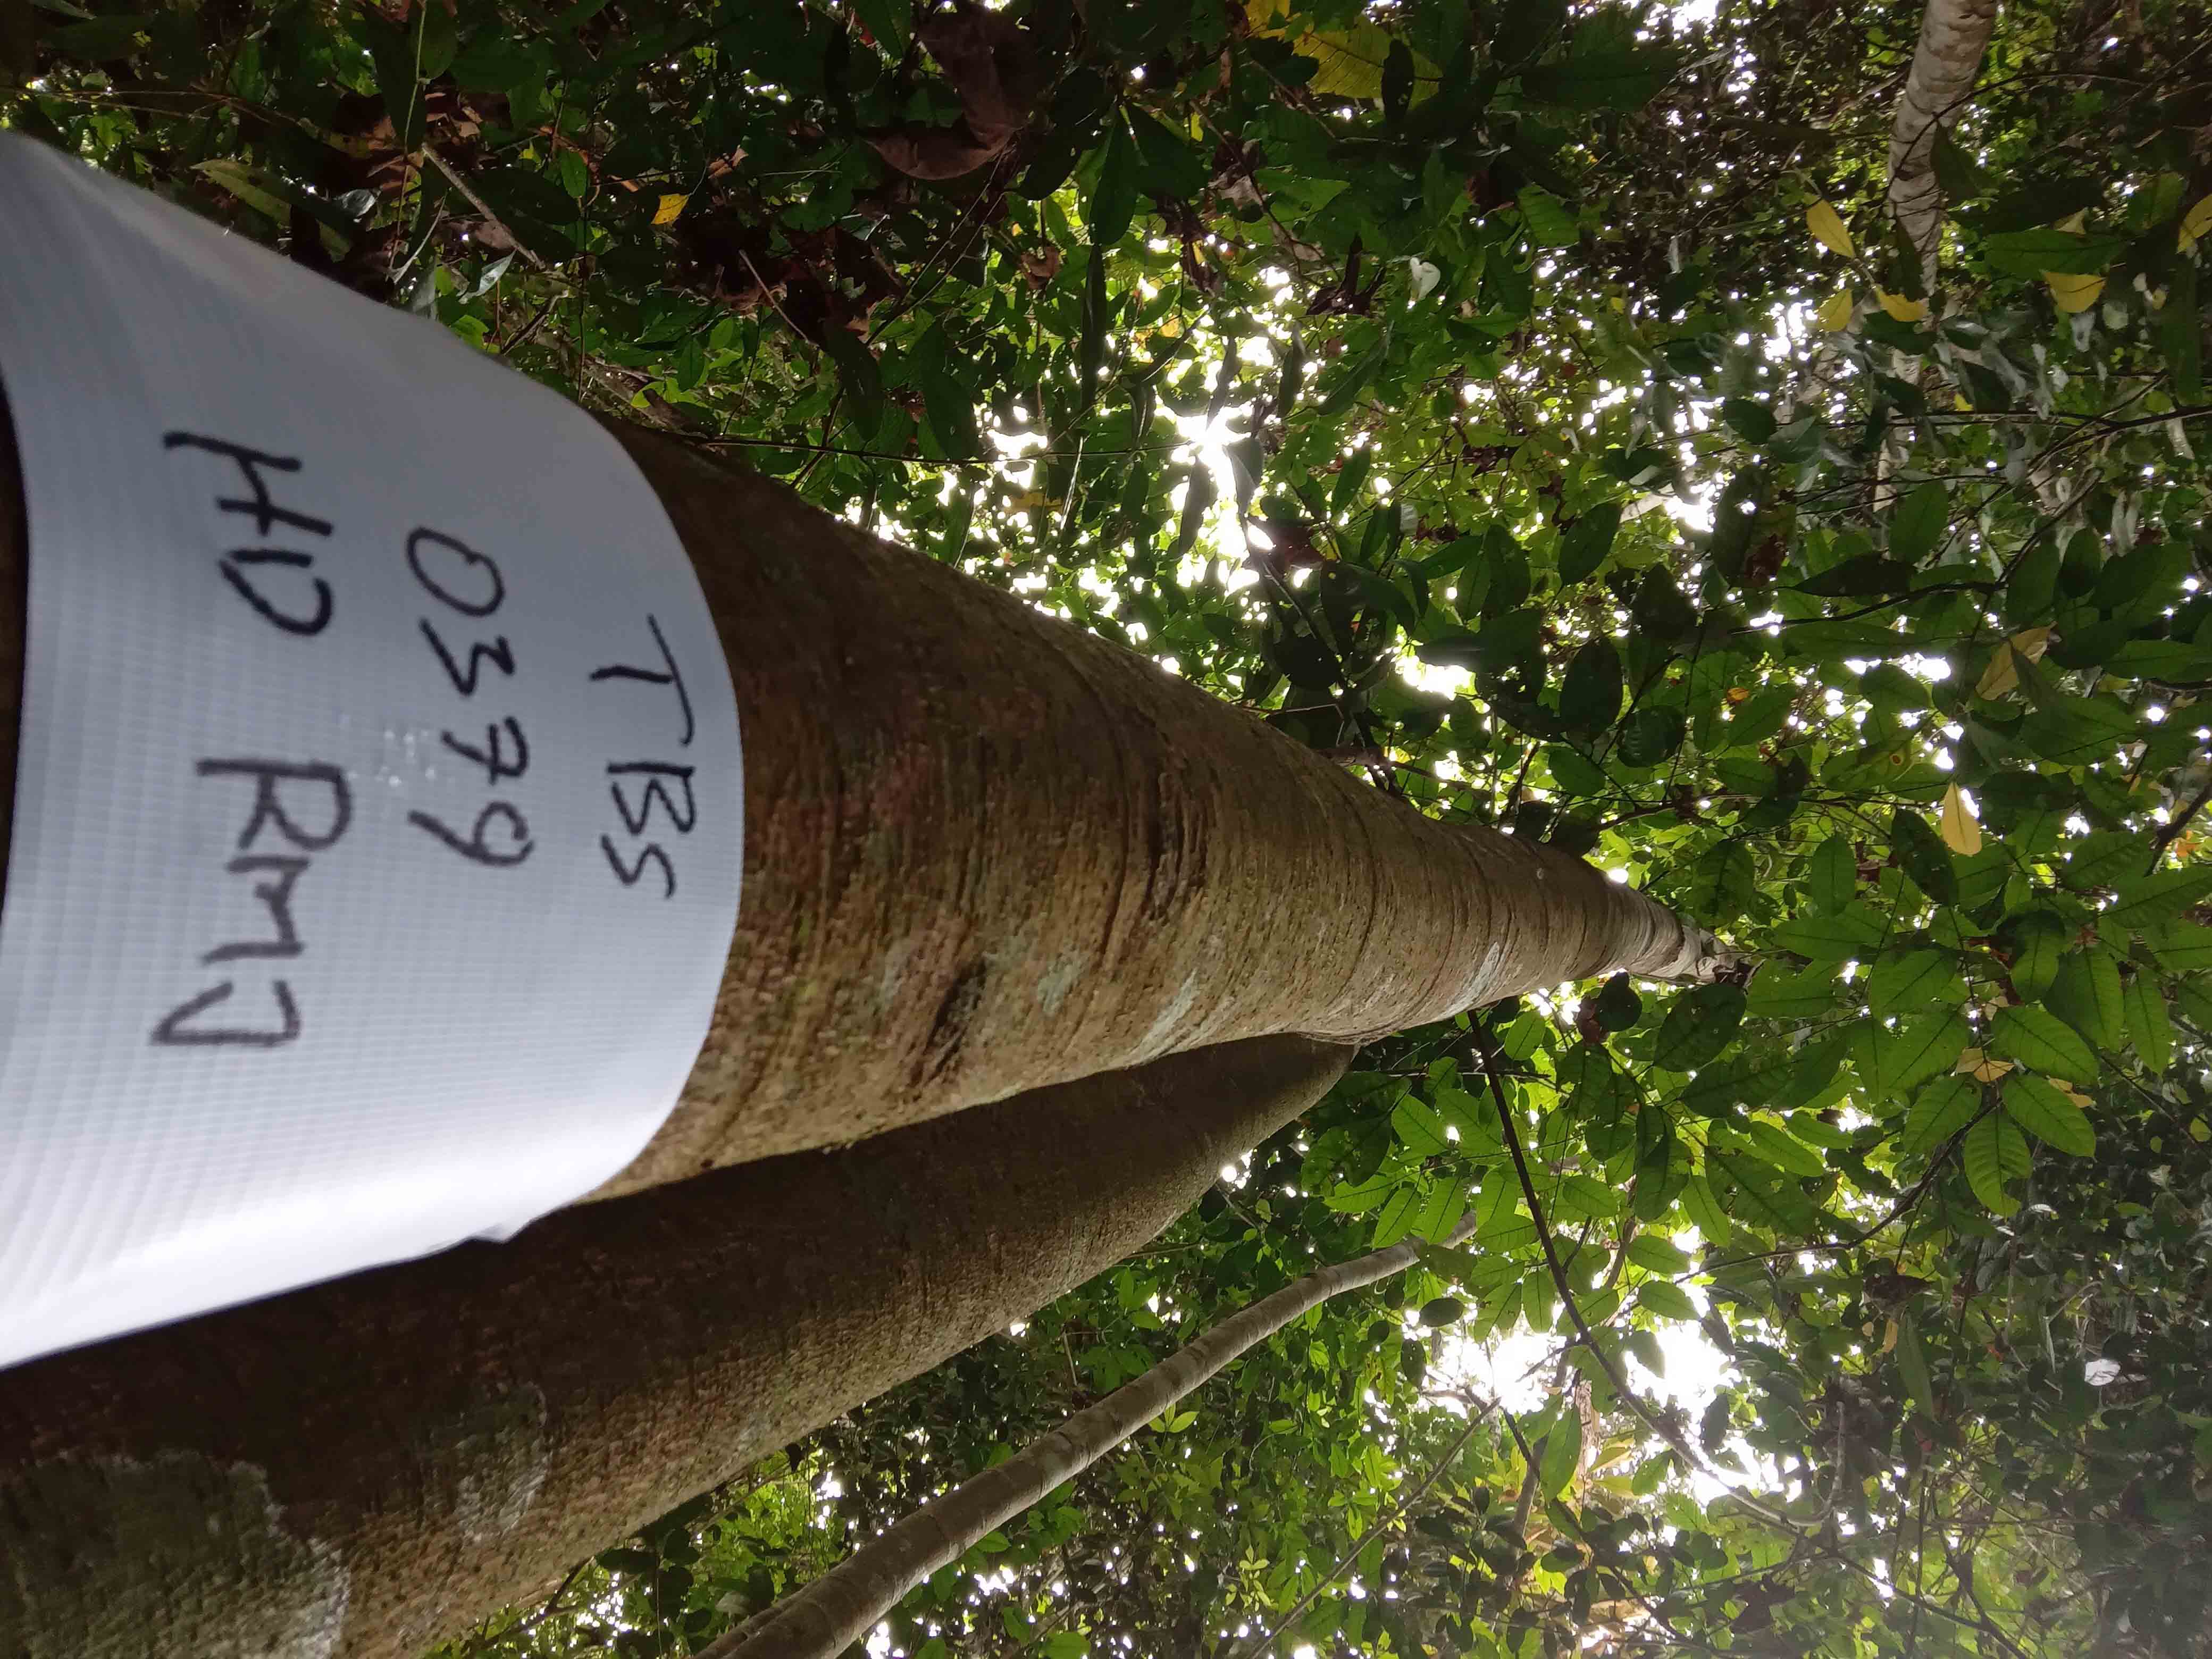 TBS
0379
HD RMJ